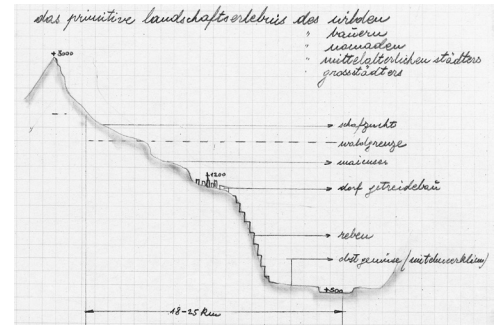 das primitive landschaftserlebnis des wilden
" bauern
" nomaden
" mittelalterlichen städters
" grosstädters
+3000
schafzucht
waldgrenze
+1200
dorf getreidebau
reben
obst gemüse
+500
18-25 km